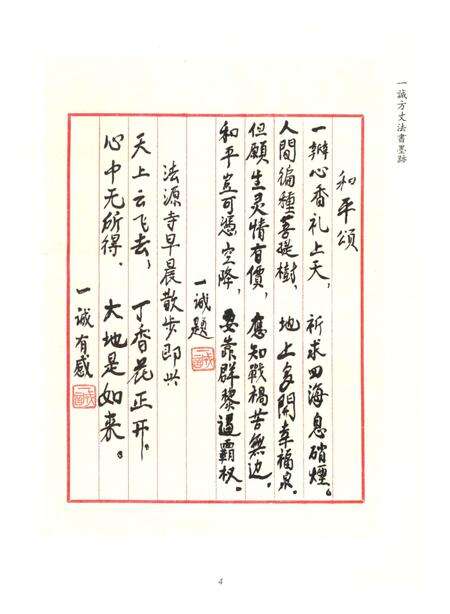 一誠方丈法書墨跡
和平頌
一瓣心香礼上天，祈求四海息硝煙。
人間徧種菩提樹，地上多開幸福泉。
但願生灵情有價，應知戰禍苦無边。
和平豈可憑空降，要靠群黎遏霸权。
一诚题
法源寺早晨散步即兴
天上云飞去，丁香花正开。
心中无所得，大地是如来。
一诚有感
4